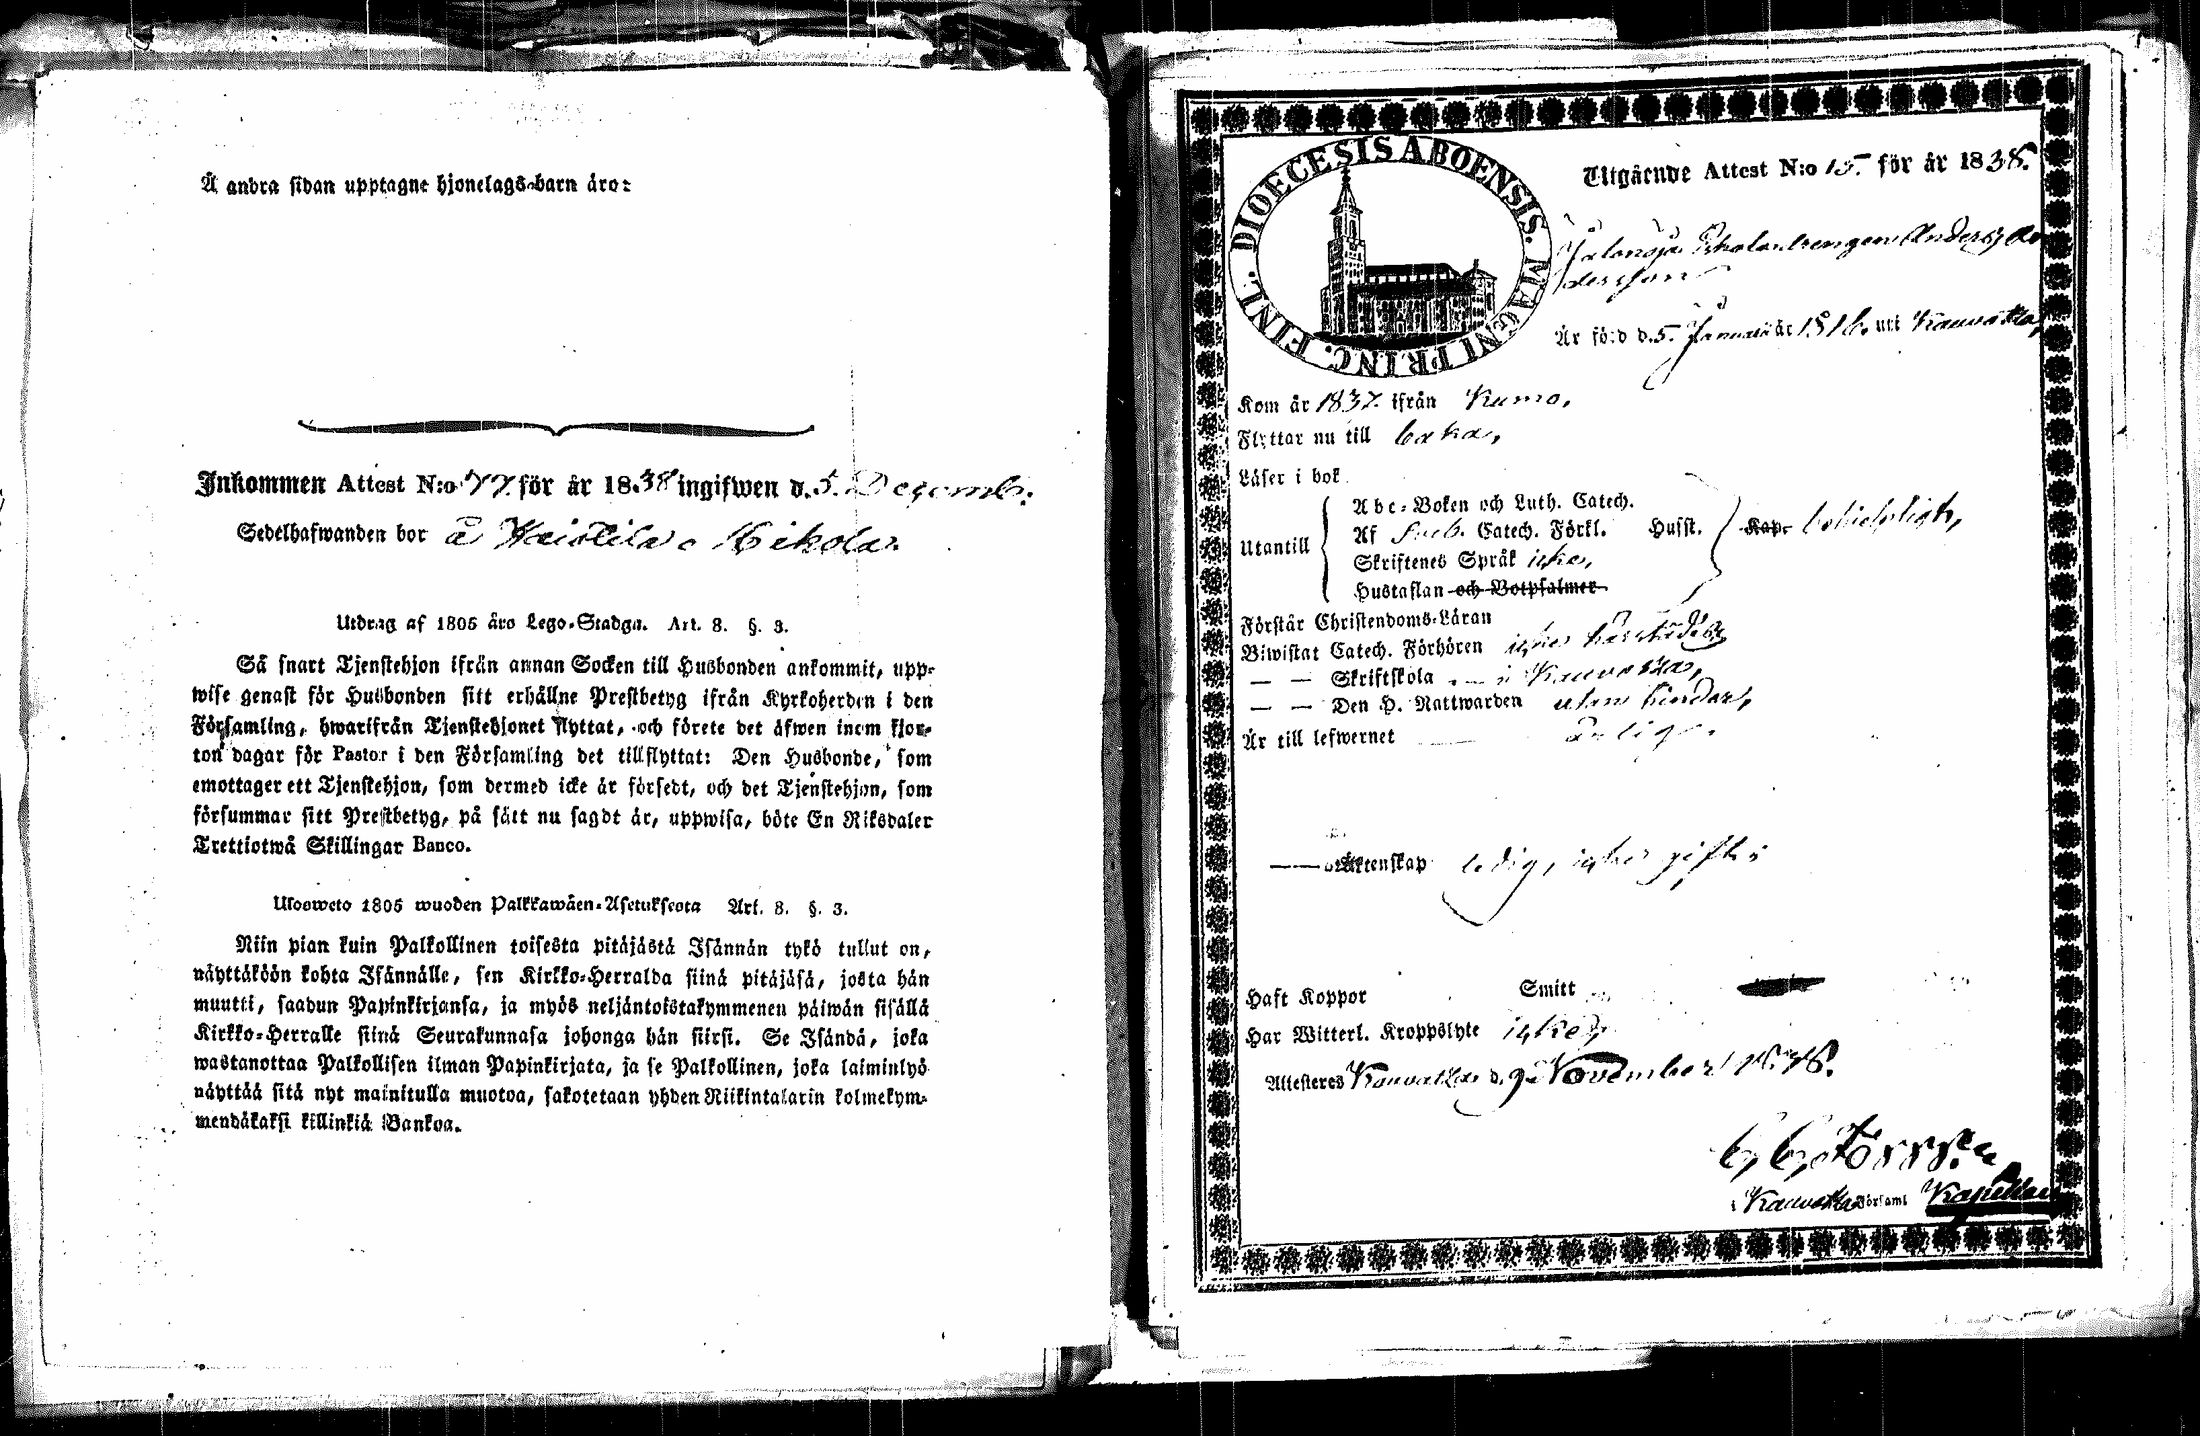 Å andra sidan upptagne hjonelags-barn äro:
Inkommen Attest N:o 77. för år 1838 ingifwen d. 5. Decemb:
Sedelhafwanden bor å Mikola.
Utdrag af 1805 års Lego-Stadga. Art. 8. §. 3.
Så snart Tjenstehjon ifrån annan Socken till Husbonden ankommit, upp-
wise genast för Husbonden sitt erhållne Prestbetyg ifrån Kyrkoherden i den
Församling, hwarifrån Tjenstehjonet flyttat, och förete det äfwen inom fjor-
ton dagar för Pastor i den Församling det tillflyttat: Den Husbonde, som
emottager ett Tjenstehjon, som dermed icke är försedt, och det Tjenstehjon, som
försummar sitt Prestbetyg, på sätt nu sagdt är, uppwisa, böte En Riksdaler
Trettiotwå Skillingar Banco.
Ulosweto 1805 wuoden Palkkawäen-Asetuksesta Art. 8. §. 3.
Niin pian kuin Palkollinen toisesta pitäjästä Isännän tykö tullut on,
näyttäköön kohta Isännälle, sen Kirkko-Herralda siinä pitäjäsä, josta hän
muutti, saadun Papinkirjansa, ja myös neljäntoistakymmenen päiwän sisällä
Kirkko-Herralle siinä Seurakunnasa johonga hän siirsi. Se Isändä, joka
wastanottaa Palkollisen ilman Papinkirjata, ja se Palkollinen, joka laiminlyö
näyttää sitä nyt mainitulla muotoa, sakotetaan yhden Riikintalarin kolmekym-
mendäkaksi killinkiä Bankoa.
DIOECESIS ABOENSIS. MAGNI PRINC. FINL.
Utgående Attest N:o 15. för år 1838.
Anders An
dersson
Är född d. 5. Januarii år 1816. uti Kauvatsa,
Kom år 1837. ifrån Kumo,
Flyttar nu till
Läser i bok
Abc-Boken och Luth. Catech.
Utantill Af Sveb. Catech. Förkl. Husst. Kap.
Skriftenes Språk icke,
Hustaflan och Botpsalmer
Förstår Christendoms-Läran
Biwistat Catech. Förhören icke
— — Skriftskola i Kauvatsa,
— — Den H. Nattwarden utan hinder,
Är till lefwernet ärlig.
Äktenskap ledig, icke gift;
Haft Koppor Smitt
Har Witterl. Kroppslyte icke,
Attesteres Kauvatsa d. 9. November 1838.
Kauvatsa Församl Kapellan